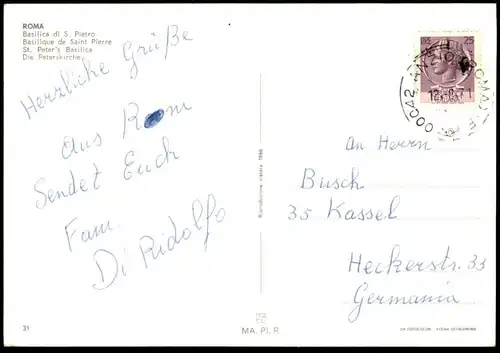 ROMA
Basilica di S. Pietro
Basilique de Saint Pierre
St. Peter's Basilica
Die Peterskirche
Herzliche Grüße
aus Rom
Sendet Euch
Fam.
Di Ridolfo
31
Riproduzione vietata
MA. PI. R
25
00042 ANZIO (ROMA)
an Herrn
Busch
35 Kassel
Heckerstr. 33
Germania